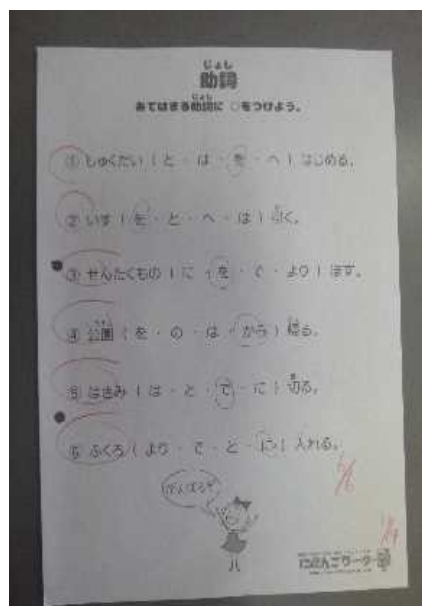 じょし
助詞
じょし
あてはまる助詞に ○をつけよう。
① しゅくだい ( と ・ は ・ を ・ へ ) はじめる。
② いす ( を ・ と ・ へ ・ は ) 引く。
③ せんたくもの ( に ・ を ・ で ・ より ) ほす。
④ 公園 ( を ・ の ・ は ・ から ) 帰る。
⑤ はさみ ( は ・ と ・ で ・ に ) 切る。
⑥ ふくろ ( より ・ で ・ と ・ に ) 入れる。
がんばるぞ
6/6